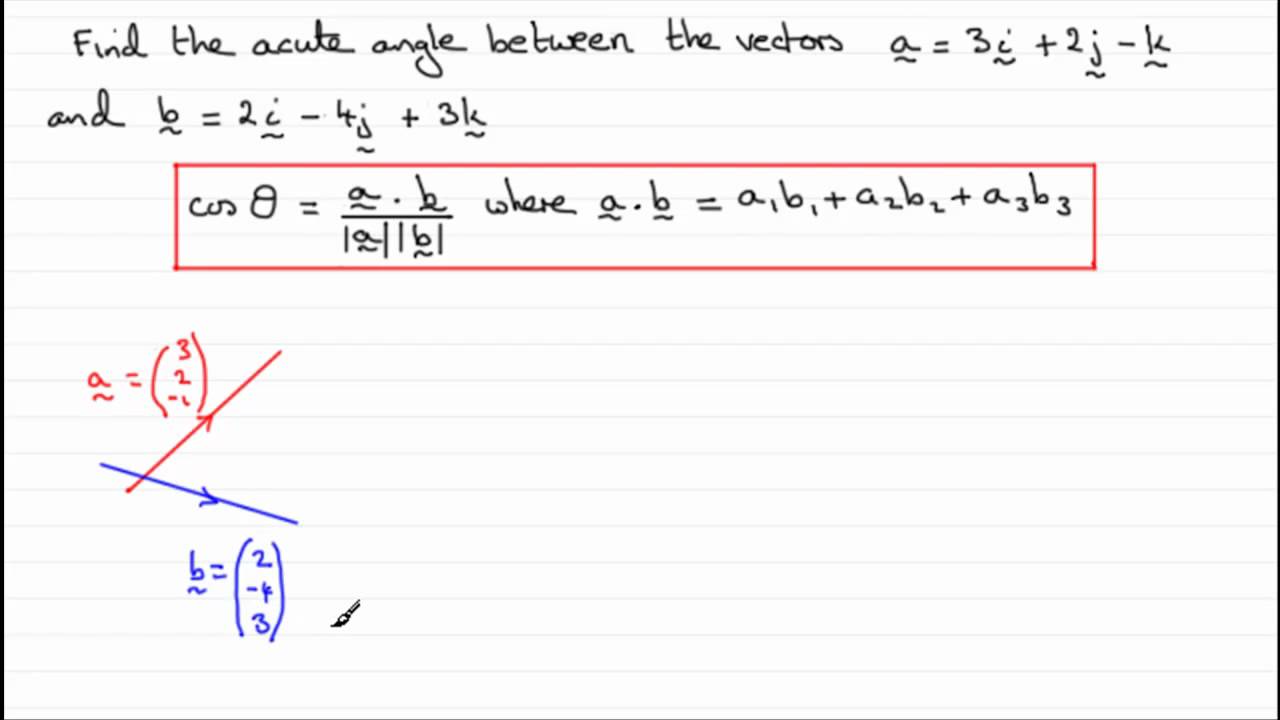 Find the acute angle between the vectors a = 3i + 2j - k
and b = 2i - 4j + 3k
cos θ = a . b / |a||b| where a . b = a₁b₁ + a₂b₂ + a₃b₃
a = (3
2
-1)
b = (2
-4
3)